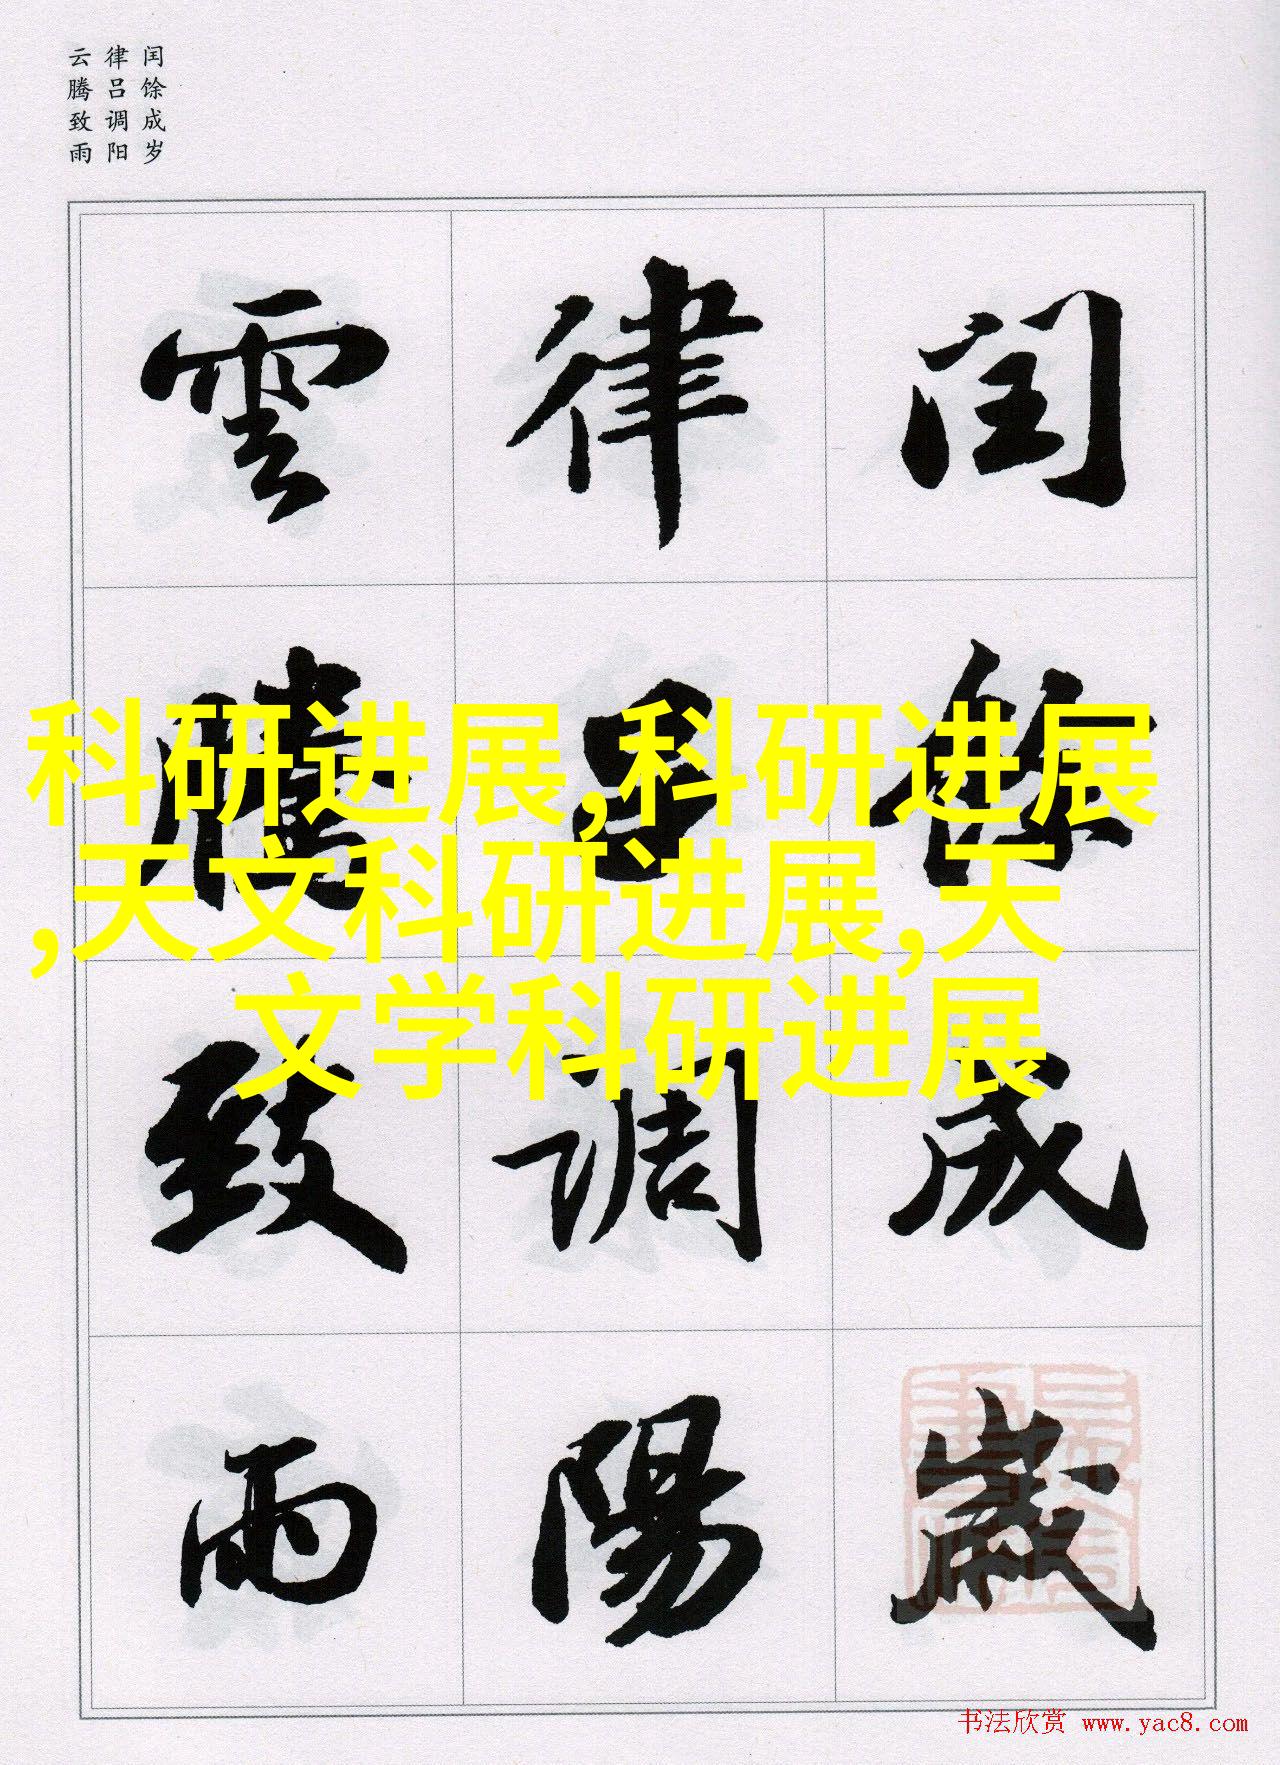 闰馀成岁
律吕调阳
云腾致雨
閏餘成歲
律吕調陽
雲騰致雨
科研进展,科研进展
,天文科研进展,天
文学科研进展
书法欣赏 www.yac8.com